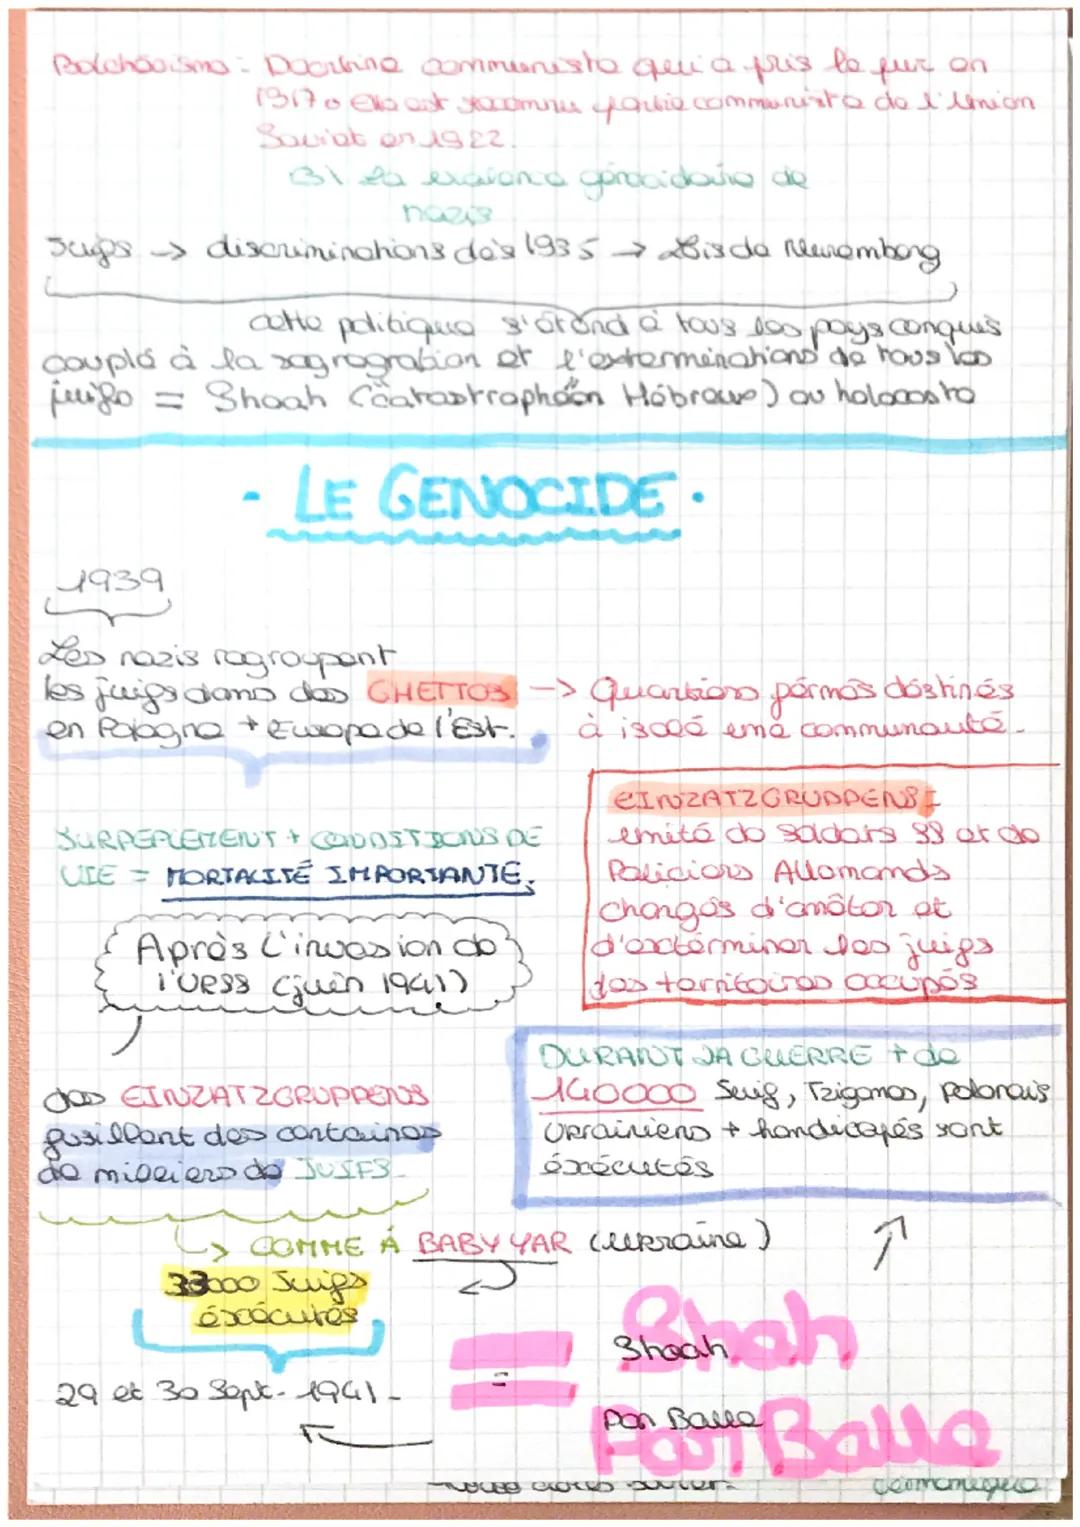 Bolchévisme : Doctrine communiste qui a pris le pur en
1917. Elle est reconnu partie communiste de l'Union
Soviet en 1922.
B\ La violence génocidaire de
nazis
Juifs -> discriminations dès 1935 -> Lois de Nuremberg
cette politique s'étend à tous les pays conquis
couplé à la ségrégration et l'exterminations de tous les
juifs = Shoah (catastrophe en Hébreux) ou holocoste
- LE GENOCIDE -
1939
Les nazis regroupent
les juifs dans des GHETTOS -> Quartiers fermés déstinés
en Pologne + Europe de l'Est. à isolé une communauté.
EINZATZGRUPPENS :
SURPEPLEMENT + CONDITIONS DE
unité de soldats SS et de
VIE = MORTALITÉ IMPORTANTE.
Policiers Allemands
chargés d'arrêter et
Après l'invasion de
d'exterminer les juifs
l'URSS (juin 1941)
des territoires occupés
DURANT LA GUERRE + de
des EINZATZGRUPPENS
140000 Juif, Tziganes, Polonais
fusillent des centaines
Ukrainiens + handicapés sont
de milliers de JUIFS
éxécutés
-> COMME À BABY YAR (Ukraine)
33000 Juifs
éxécutés
Shoah
Shoah
29 et 30 Sept. 1941 -
=
par Balle
par Balle